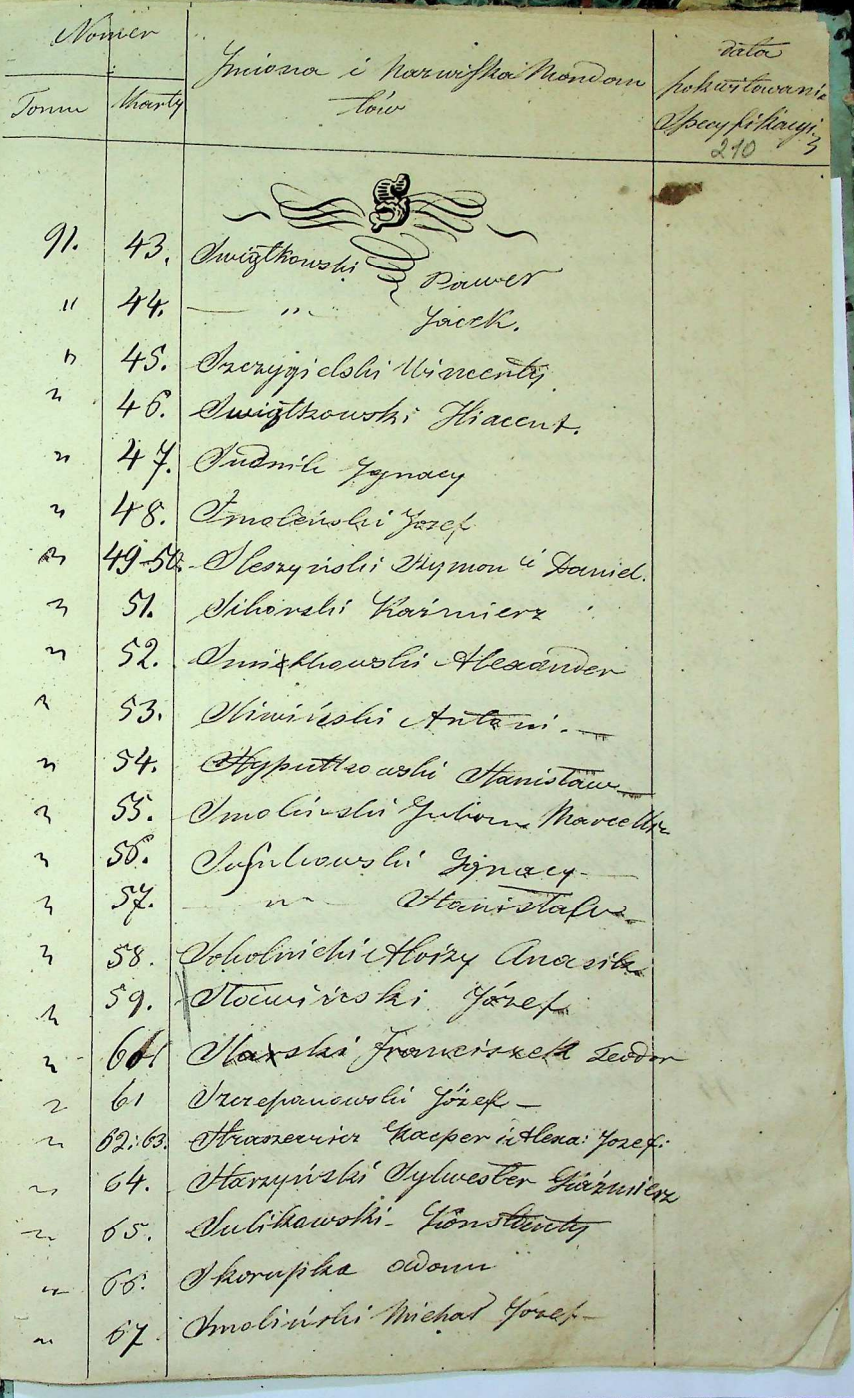 Nomer
Imiona i Nazwiska Mandan
tów
data
pokwitowania
Specyfikacyi
Tomu Karty
210
S
91. 43. Swiątkowski Paweł
" 44. — " Jacek.
" 45. Szczygielski Wincenty
" 46. Swiątkowski Hiacent.
" 47. Sudnik Ignacy
" 48. Smoleński Józef
" 49-50. Sleszyński Szymon i Daniel.
" 51. Sikorski Kaźmierz
" 52. Alexander
" 53. Siwiński Antoni. —
" 54. Stanisław
" 55. Smoliński Julian
" 56. Ignacy —
" 57. — " — Stanisław
" 58. Sokolnicki Aloizy
" 59. Sławiński Józef
" 60 Franciszek Teodor
" 61 Szczepanowski Józef —
" 62:63. Straszewicz Kacper i Alexa: Jozef:
" 64. Starzyński Sylwester Kaźmierz
" 65. Sulikowski — Konstanty
" 66. Skorupka Adam
" 67 Smoliński Michał Józef —